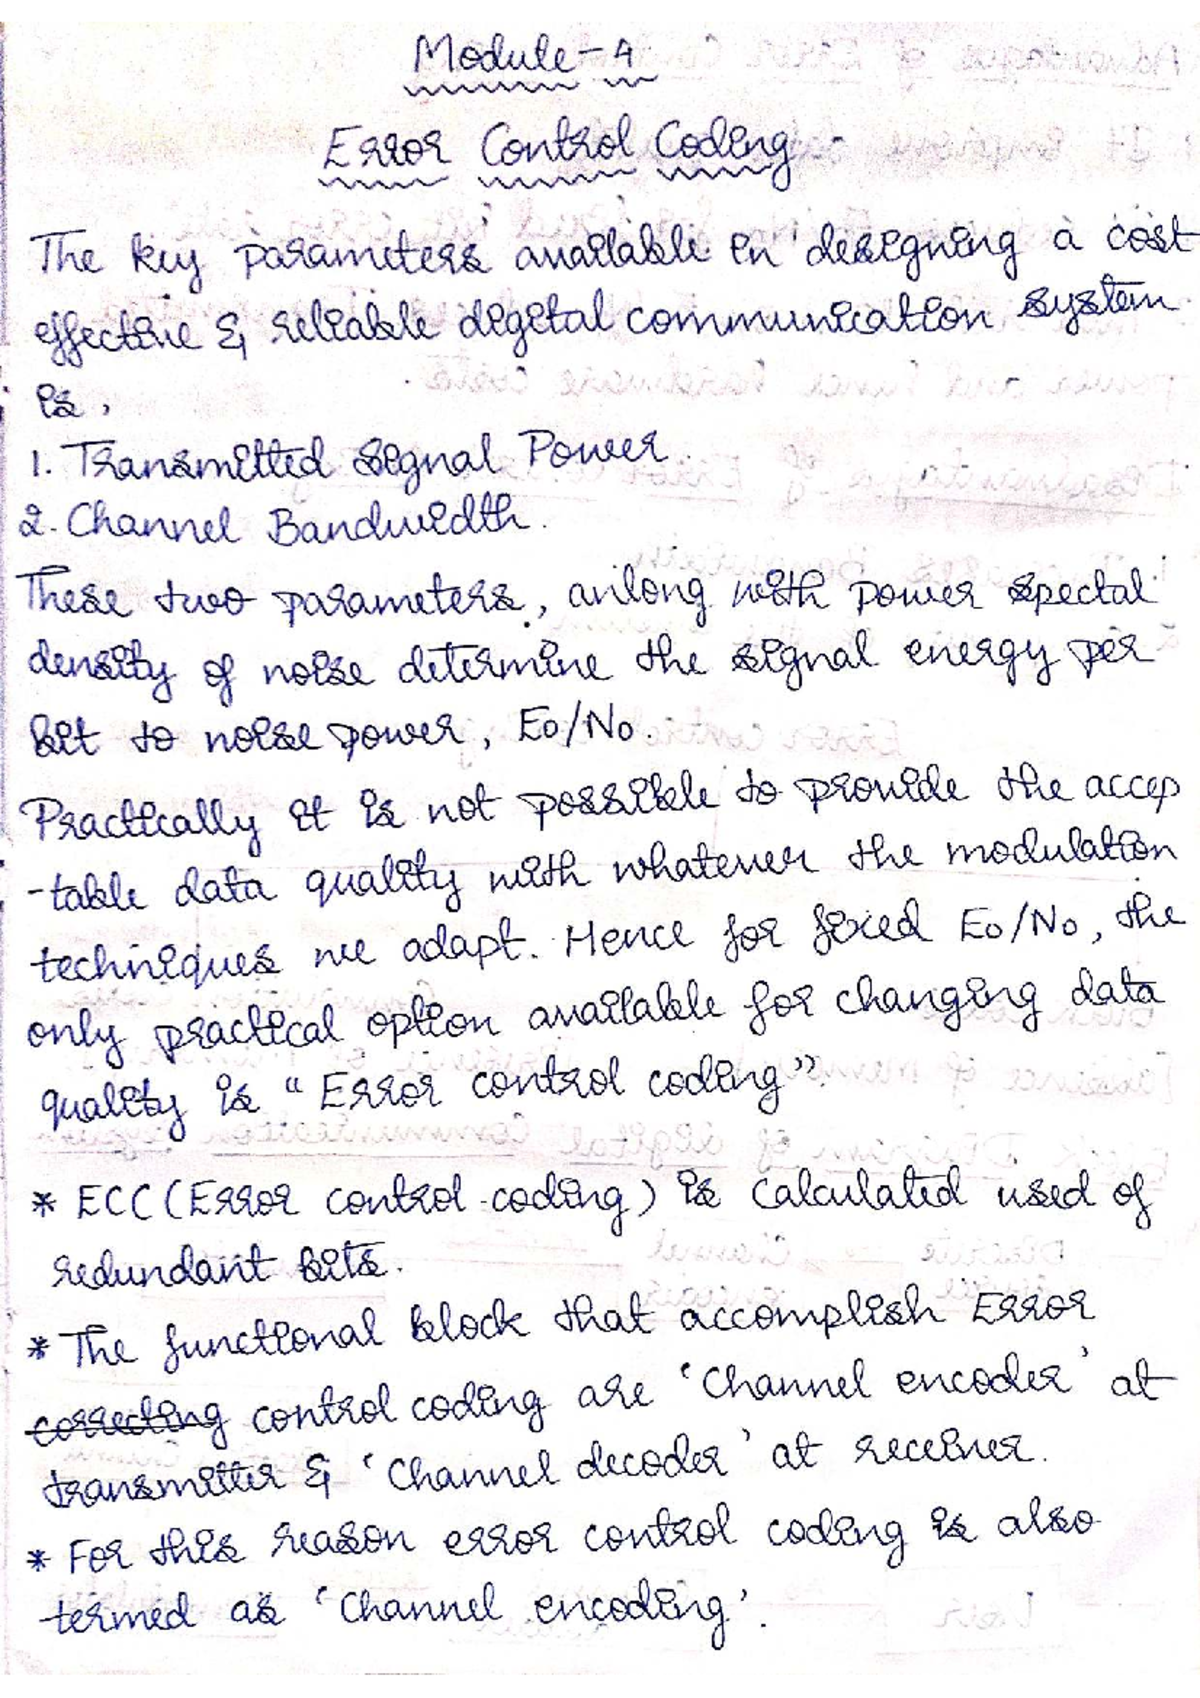 Module-4
Error Control Coding -
The key parameters available in designing a cost
effective & reliable digital communication system
is,
1. Transmitted Signal Power.
2. Channel Bandwidth.
These two parameters, anlong with power spectal
density of noise determine the signal energy per
bit to noise power, Eo/No.
Practically it is not possible to provide the accep
-table data quality with whatever the modulation
techniques we adapt. Hence for fixed Eo/No, the
only practical option available for changing data
quality is “Error control coding”.
* ECC (Error control coding) is calculated used of
redundant bits.
* The functional block that accomplish Error
correcting control coding are ‘Channel encoder’ at
transmitter & ‘Channel decoder’ at receiver.
* For this reason error control coding is also
termed as ‘Channel encoding’.